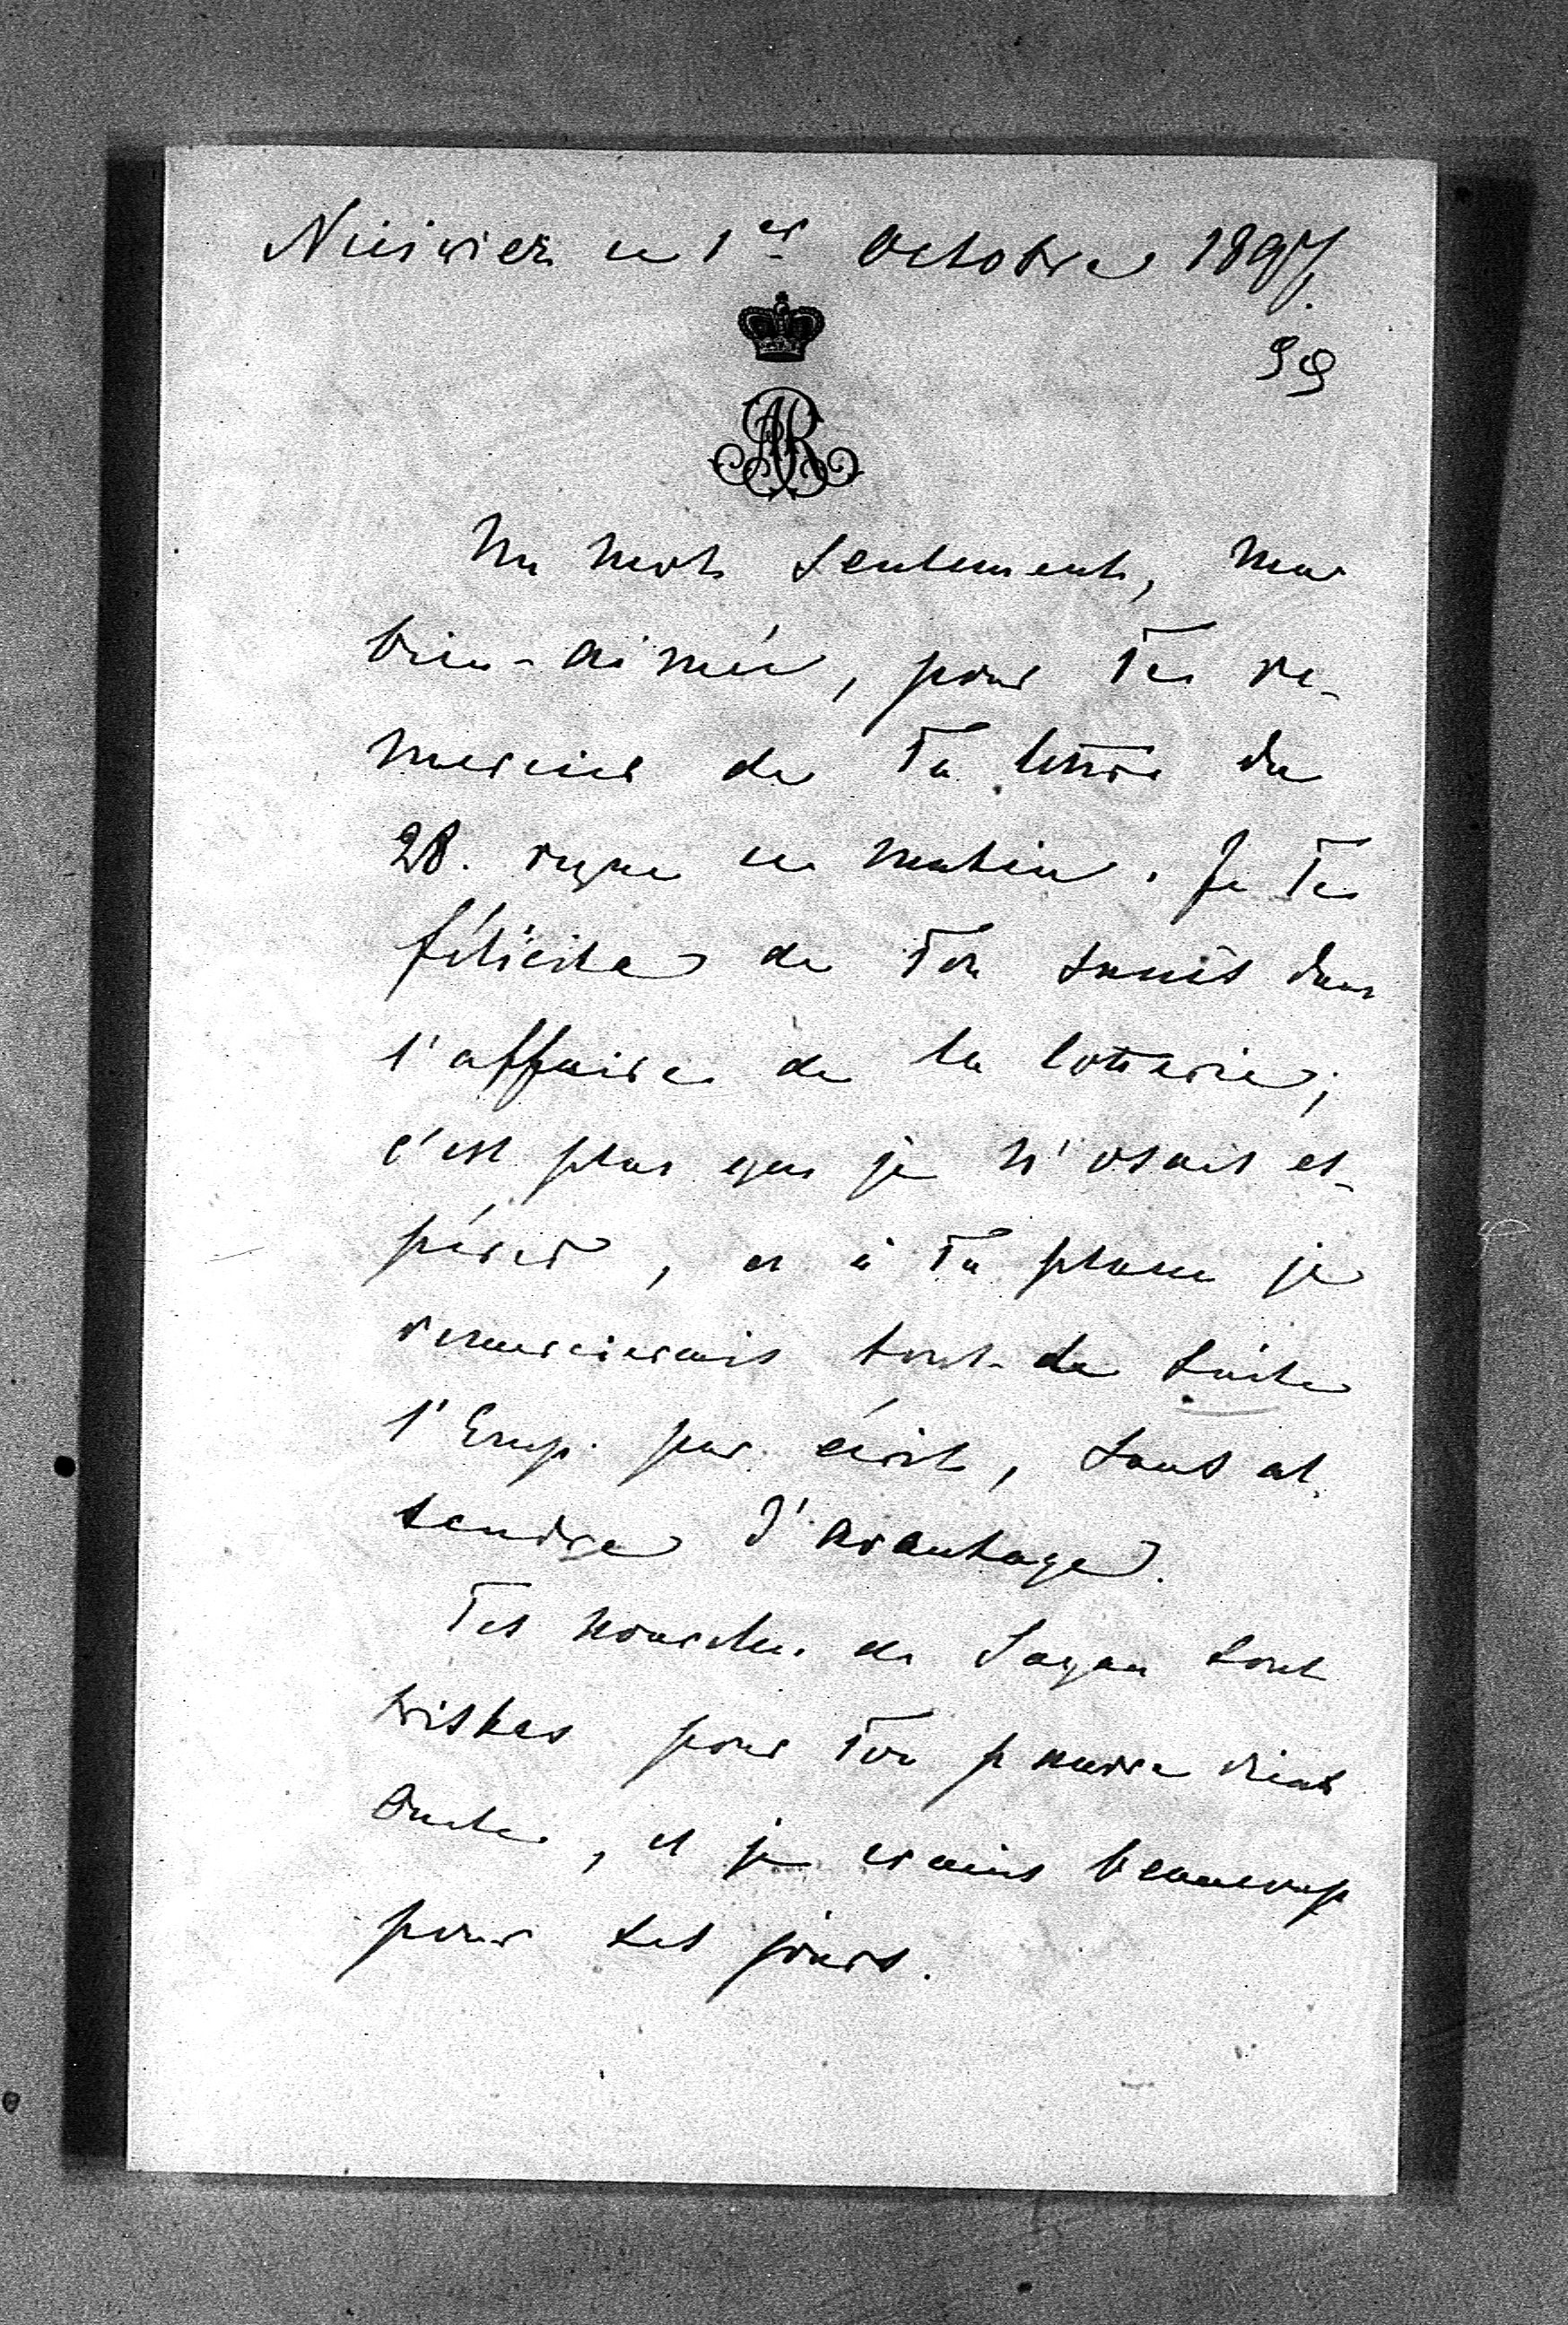 Nieśwież ce 1er Octobre 1897.
99
AR
Un mot seulement, ma
bien-aimée, pour Te re-
mercier de Ta lettre du
28. reçue ce matin. Je Te
félicite de Ton succès dans
l'affaire de la lotterie;
c'est plus que je n'osais es-
pérer, et à Ta place je
remercierais tout-de suite
l'Emp. par écrit, sans at-
tendre d'avantage.
Tes nouvelles de Sagan sont
tristes pour Ton pauvre vieux
Oncle, et je crains beaucoup
pour ses jours.